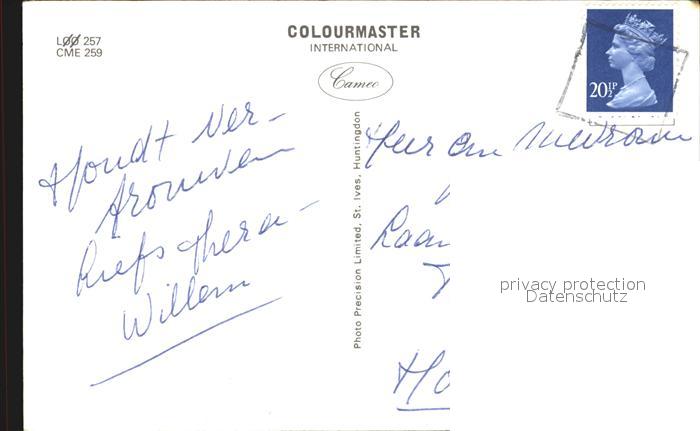 LØØ 257
CME 259
COLOURMASTER
INTERNATIONAL
Cameo
20½P
Houdt Ver-
trouwen
liefs
Willem
Photo Precision Limited, St. Ives, Huntingdon
Heer en Mevrouw
Laan
Ho
privacy protection
Datenschutz